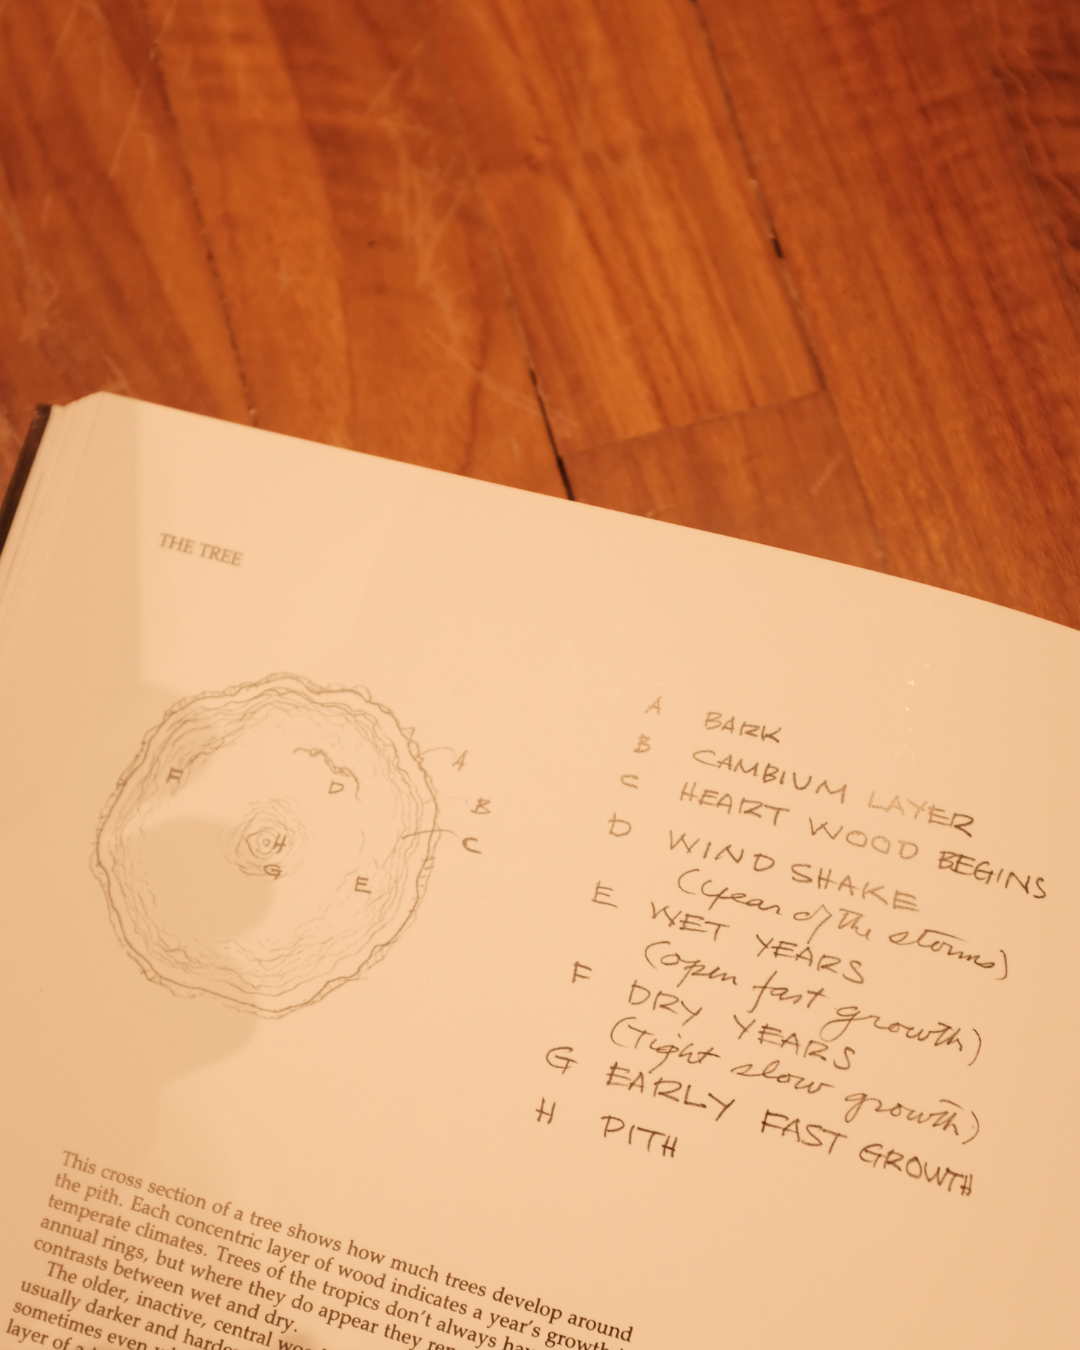 THE TREE
A
B
C
D
E
F
G
H
A BARK
B CAMBIUM LAYER
C HEART WOOD BEGINS
D WIND SHAKE
(year of the storms)
E WET YEARS
(open fast growth)
F DRY YEARS
(tight slow growth)
G EARLY FAST GROWTH
H PITH
This cross section of a tree shows how much trees develop around
the pith. Each concentric layer of wood indicates a year's growth
temperate climates. Trees of the tropics don't always
annual rings, but where they do appear they
contrasts between wet and dry.
The older, inactive, central
usually darker and
sometimes even
layer of